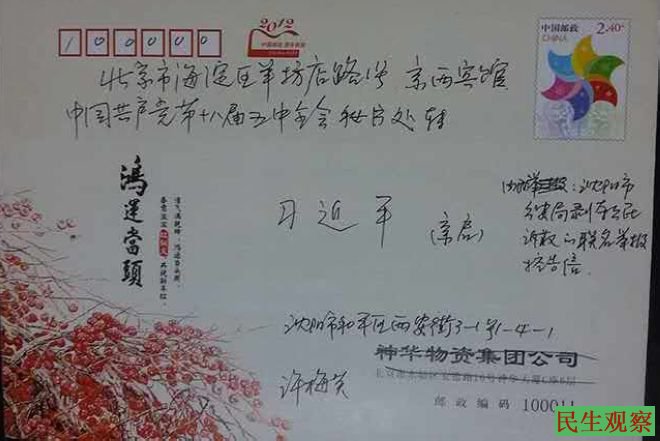 100000
2012
中国邮政
CHINA
2.40元
北京市海淀区羊坊店路1号 京西宾馆
中国共产党第十八届五中全会秘书处 转
习近平
(亲启)
内有举报：沈阳市
公安局剥夺公民
诉权的联名举报
控告信
鸿运当头
沈阳市和平区西安街3-1号1-4-1
许梅芙
神华物资集团公司
邮政编码 100011
民生观察